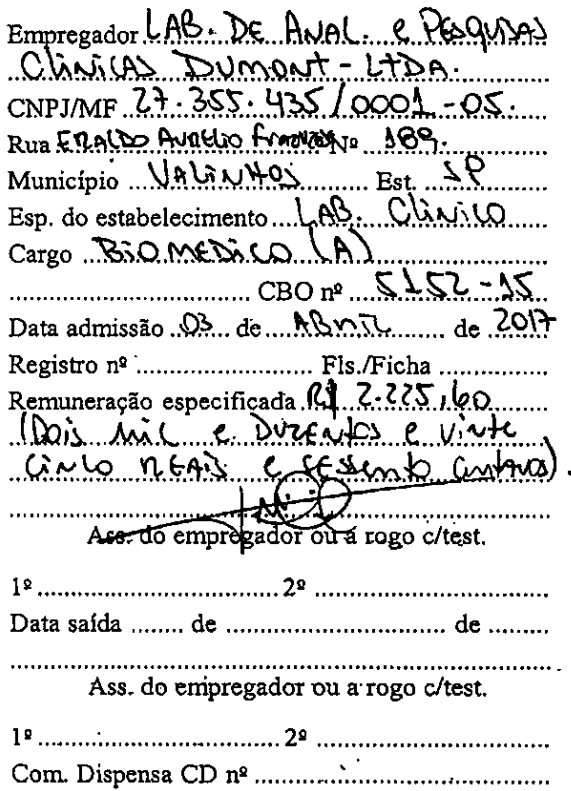 Empregador LAB. DE ANAL. e PESQUISAS
CLÍNICAS DUMONT - LTDA.
CNPJ/MF 27.355.435/0001-05.
Rua ERALDO AURELIO Nº 189.
Município VALINHOS Est. SP
Esp. do estabelecimento LAB. CLÍNICO
Cargo BIOMEDICO (A)
CBO nº 5152-15
Data admissão 03 de ABRIL de 2017
Registro nº Fls./Ficha
Remuneração especificada R$ 2.225,60
(Dois mil e DUZENTOS e vinte
cinco REAIS e sessenta centavos).
Ass. do empregador ou a rogo c/test.
1º 2º
Data saída de de
Ass. do empregador ou a rogo c/test.
1º 2º
Com. Dispensa CD nº